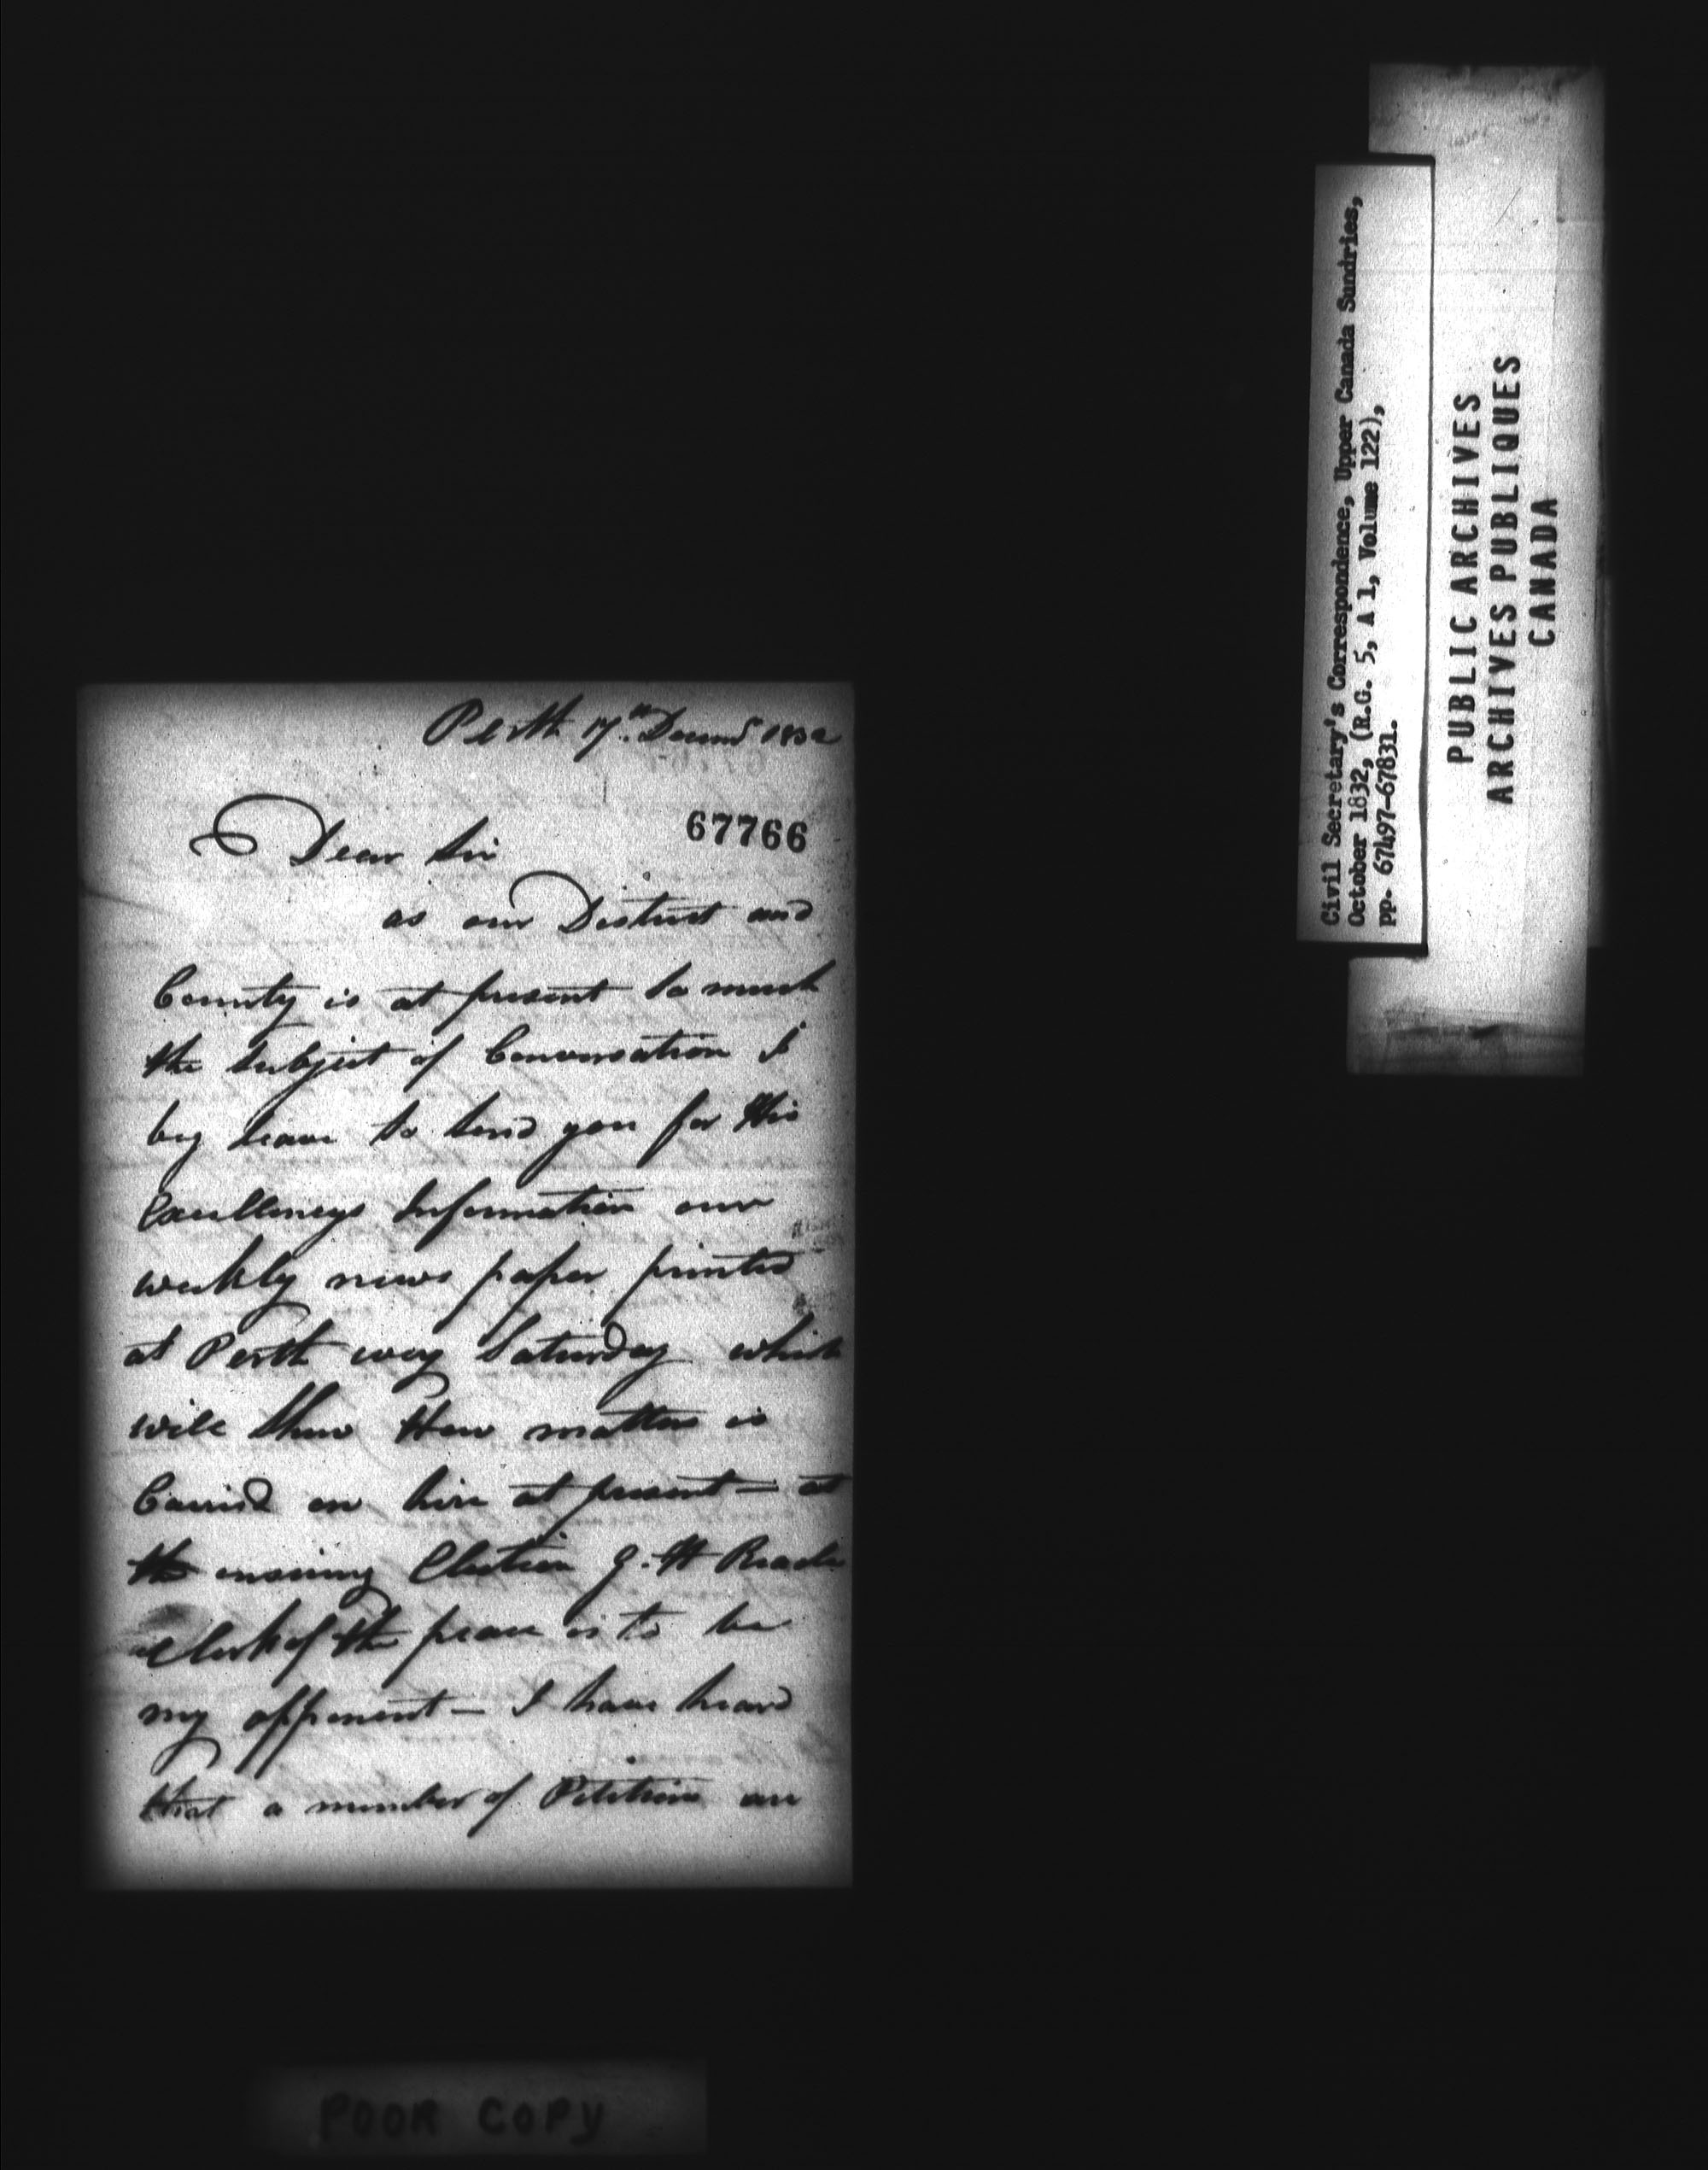 Perth 17th Decemr 1832
67766
Dear Sir
as our District and
County is at present so much
the subject of Conversation I
beg leave to send you for His
Excellencys Information our
weekly news paper printed
at Perth every Saturday which
will shew How matters is
Carried on here at present — at
the ensuing Election G. H Reade
Clerk of the peace is to be
my opponent — I have heard
that a number of Petitions are
Civil Secretary's Correspondence, Upper Canada Sundries,
October 1832, (R.G. 5, A 1, Volume 122),
pp. 67497-67831.
PUBLIC ARCHIVES
ARCHIVES PUBLIQUES
CANADA
POOR COPY